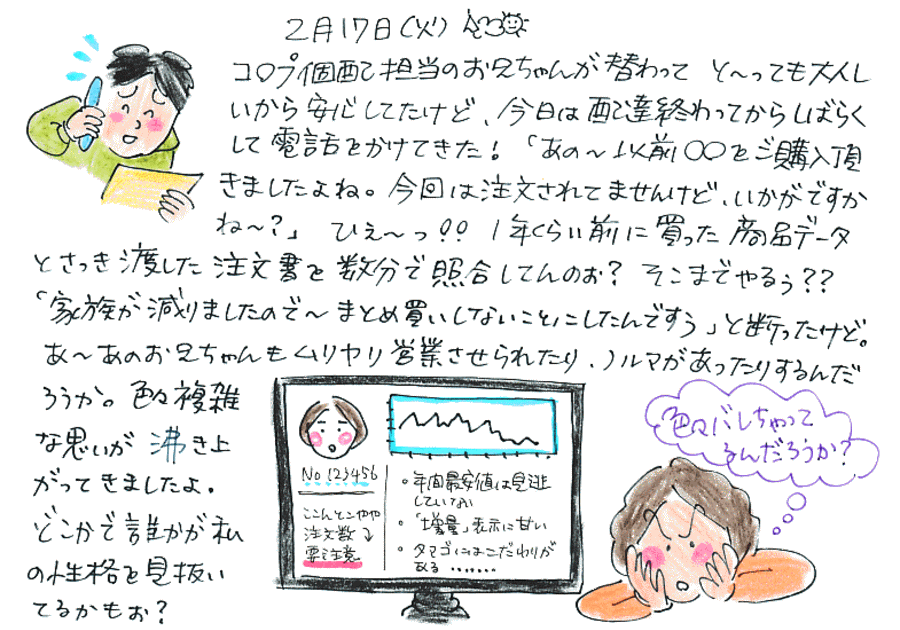 2月17日(火)
コロプ個配担当のお兄ちゃんが替わって と〜っても大人し
いから安心してたけど、今日は配達終わってからしばらく
して電話をかけてきた!「あの〜以前〇〇をご購入頂
きましたよね。今回は注文されてませんけど、いかがですか
ね〜?」 ひぇ〜っ!! 1年くらい前に買った商品データ
とさっき渡した注文書を数分で照合してんのお? そこまでやるぅ??
「家族が減りましたので〜まとめ買いしないことにしたんですぅ」と断ったけど。
あ〜あのお兄ちゃんもムリヤリ営業させられたり、ノルマがあったりするんだ
ろうか。色々複雑
な思いが沸き上
がってきましたよ。
どこかで誰かが私
の性格を見抜い
てるかもお?
No 123456
ここんとこやや
注文数↓
要注意
・年間最安値は見逃
していない
・「増量」表示に甘い
・タマゴにはこだわりが
ある ……
色々バレちゃって
るんだろうか?